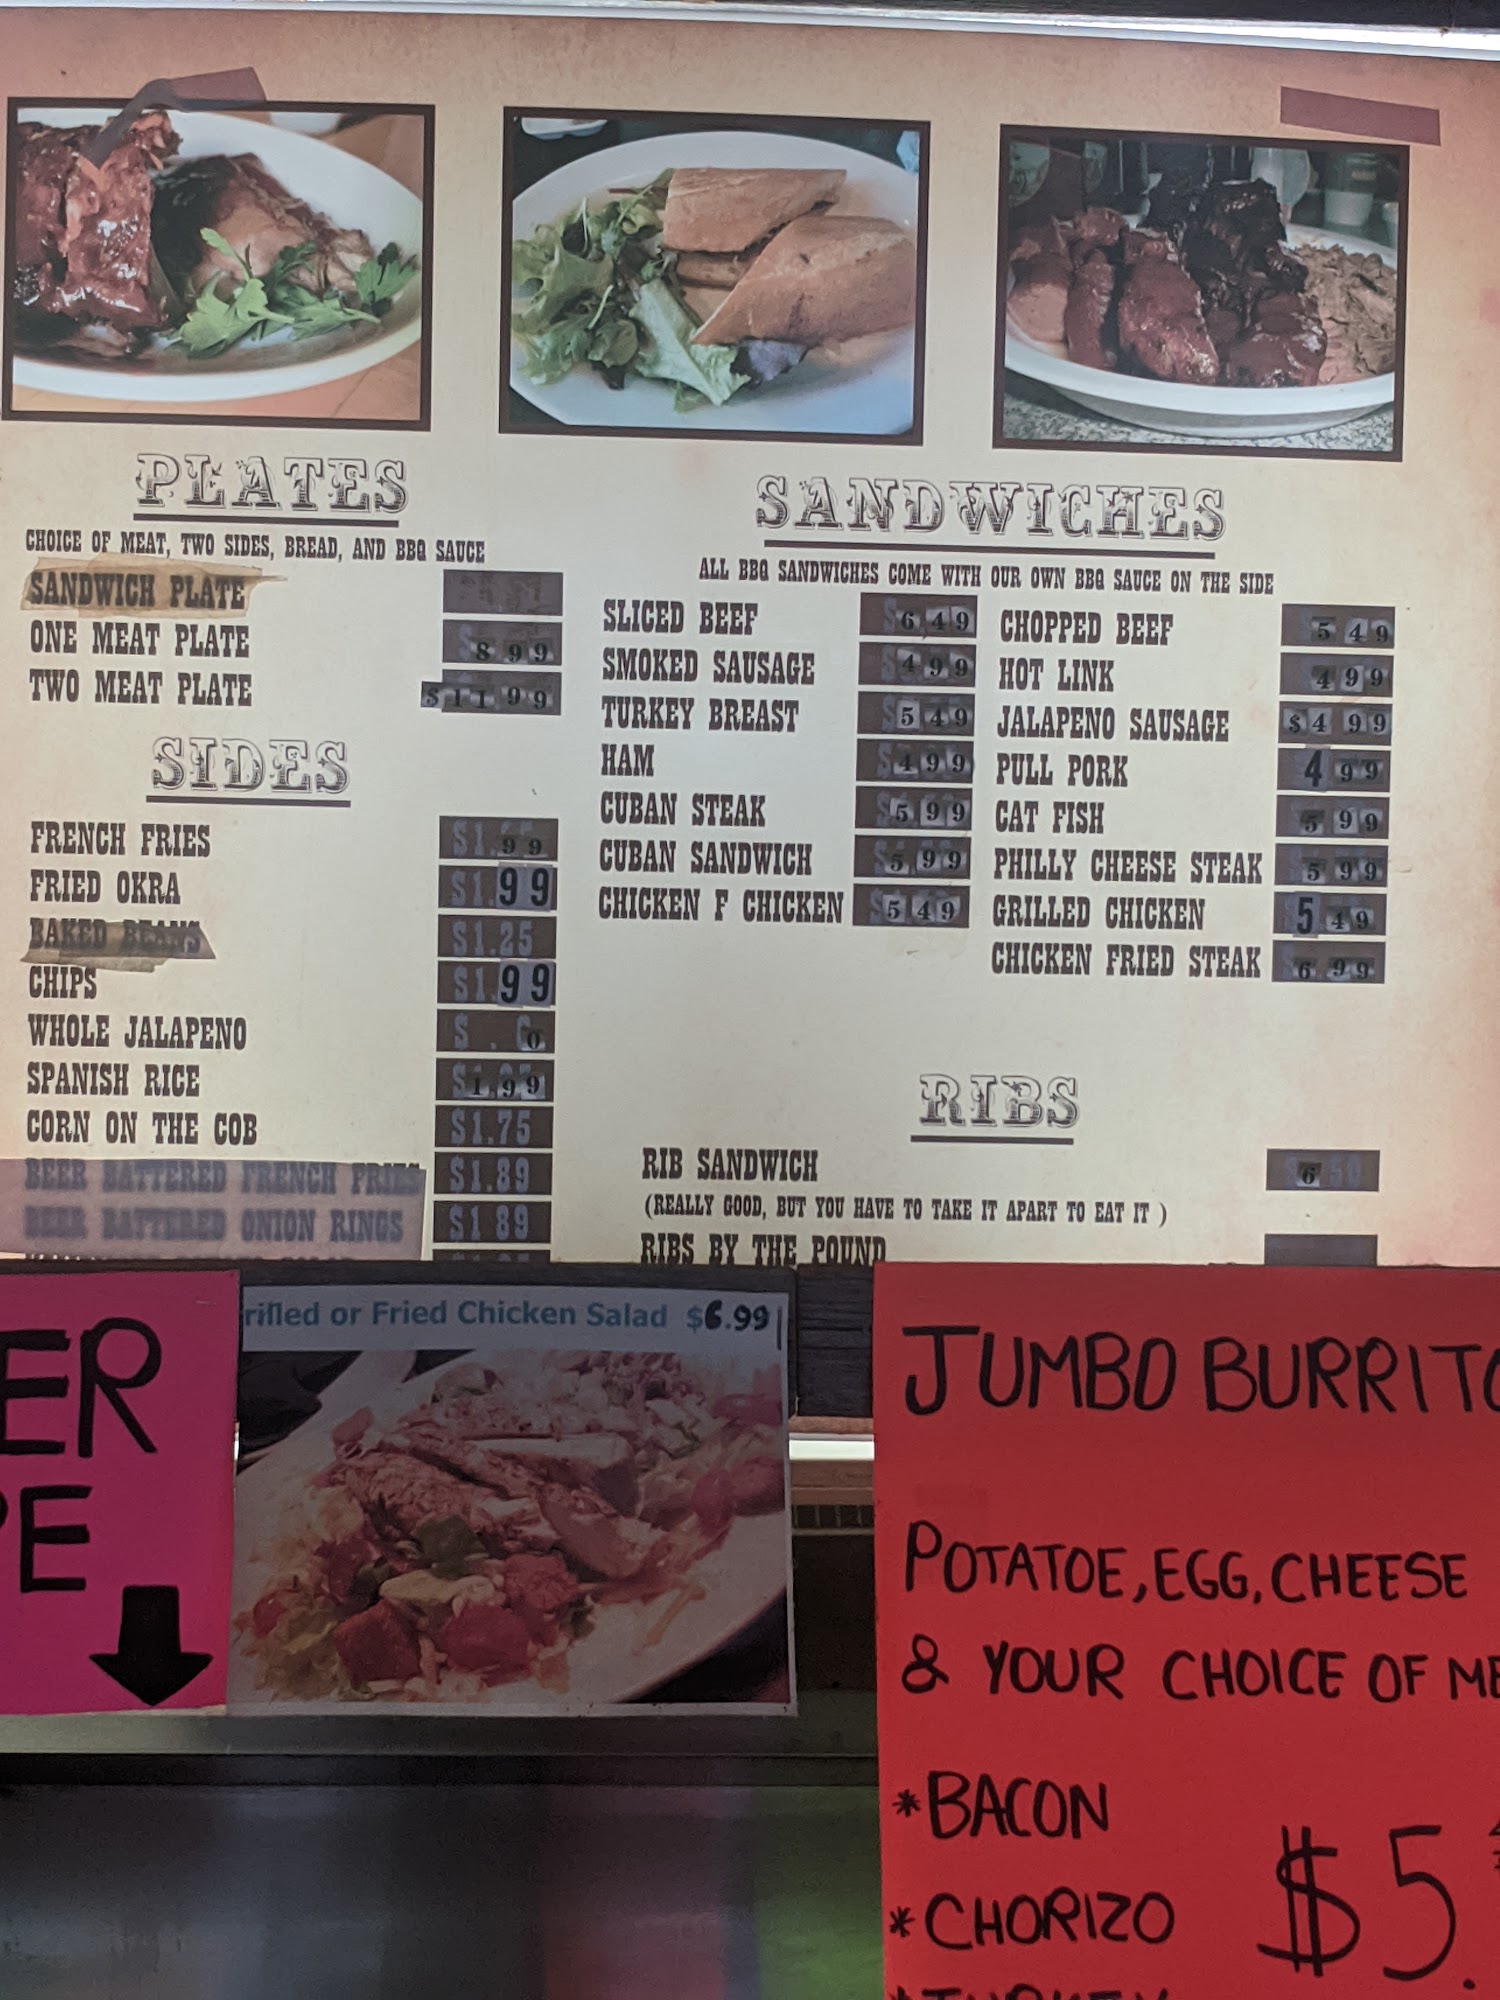 PLATES
CHOICE OF MEAT, TWO SIDES, BREAD, AND BBQ SAUCE
SANDWICH PLATE
ONE MEAT PLATE 8 99
TWO MEAT PLATE $11 99
SIDES
FRENCH FRIES $1.99
FRIED OKRA $1.99
BAKED BEANS $1.25
CHIPS $1.99
WHOLE JALAPENO
SPANISH RICE $1.99
CORN ON THE COB $1.75
BEER BATTERED FRENCH FRIES $1.89
BEER BATTERED ONION RINGS $1 89
SANDWICHES
ALL BBQ SANDWICHES COME WITH OUR OWN BBQ SAUCE ON THE SIDE
SLICED BEEF $6 49
SMOKED SAUSAGE $4 99
TURKEY BREAST $5 49
HAM $4 99
CUBAN STEAK $5 99
CUBAN SANDWICH 5.99
CHICKEN F CHICKEN $5 49
CHOPPED BEEF 5 49
HOT LINK 4 99
JALAPENO SAUSAGE $4 99
PULL PORK 4 99
CAT FISH 5 99
PHILLY CHEESE STEAK 5 99
GRILLED CHICKEN 5 49
CHICKEN FRIED STEAK 6 99
RIBS
RIB SANDWICH $6.50
(REALLY GOOD, BUT YOU HAVE TO TAKE IT APART TO EAT IT )
RIBS BY THE POUND
ER
PE
rilled or Fried Chicken Salad $6.99
JUMBO BURRITO
POTATOE, EGG, CHEESE
& YOUR CHOICE OF ME
*BACON
*CHORIZO
$5.
*TURKEY